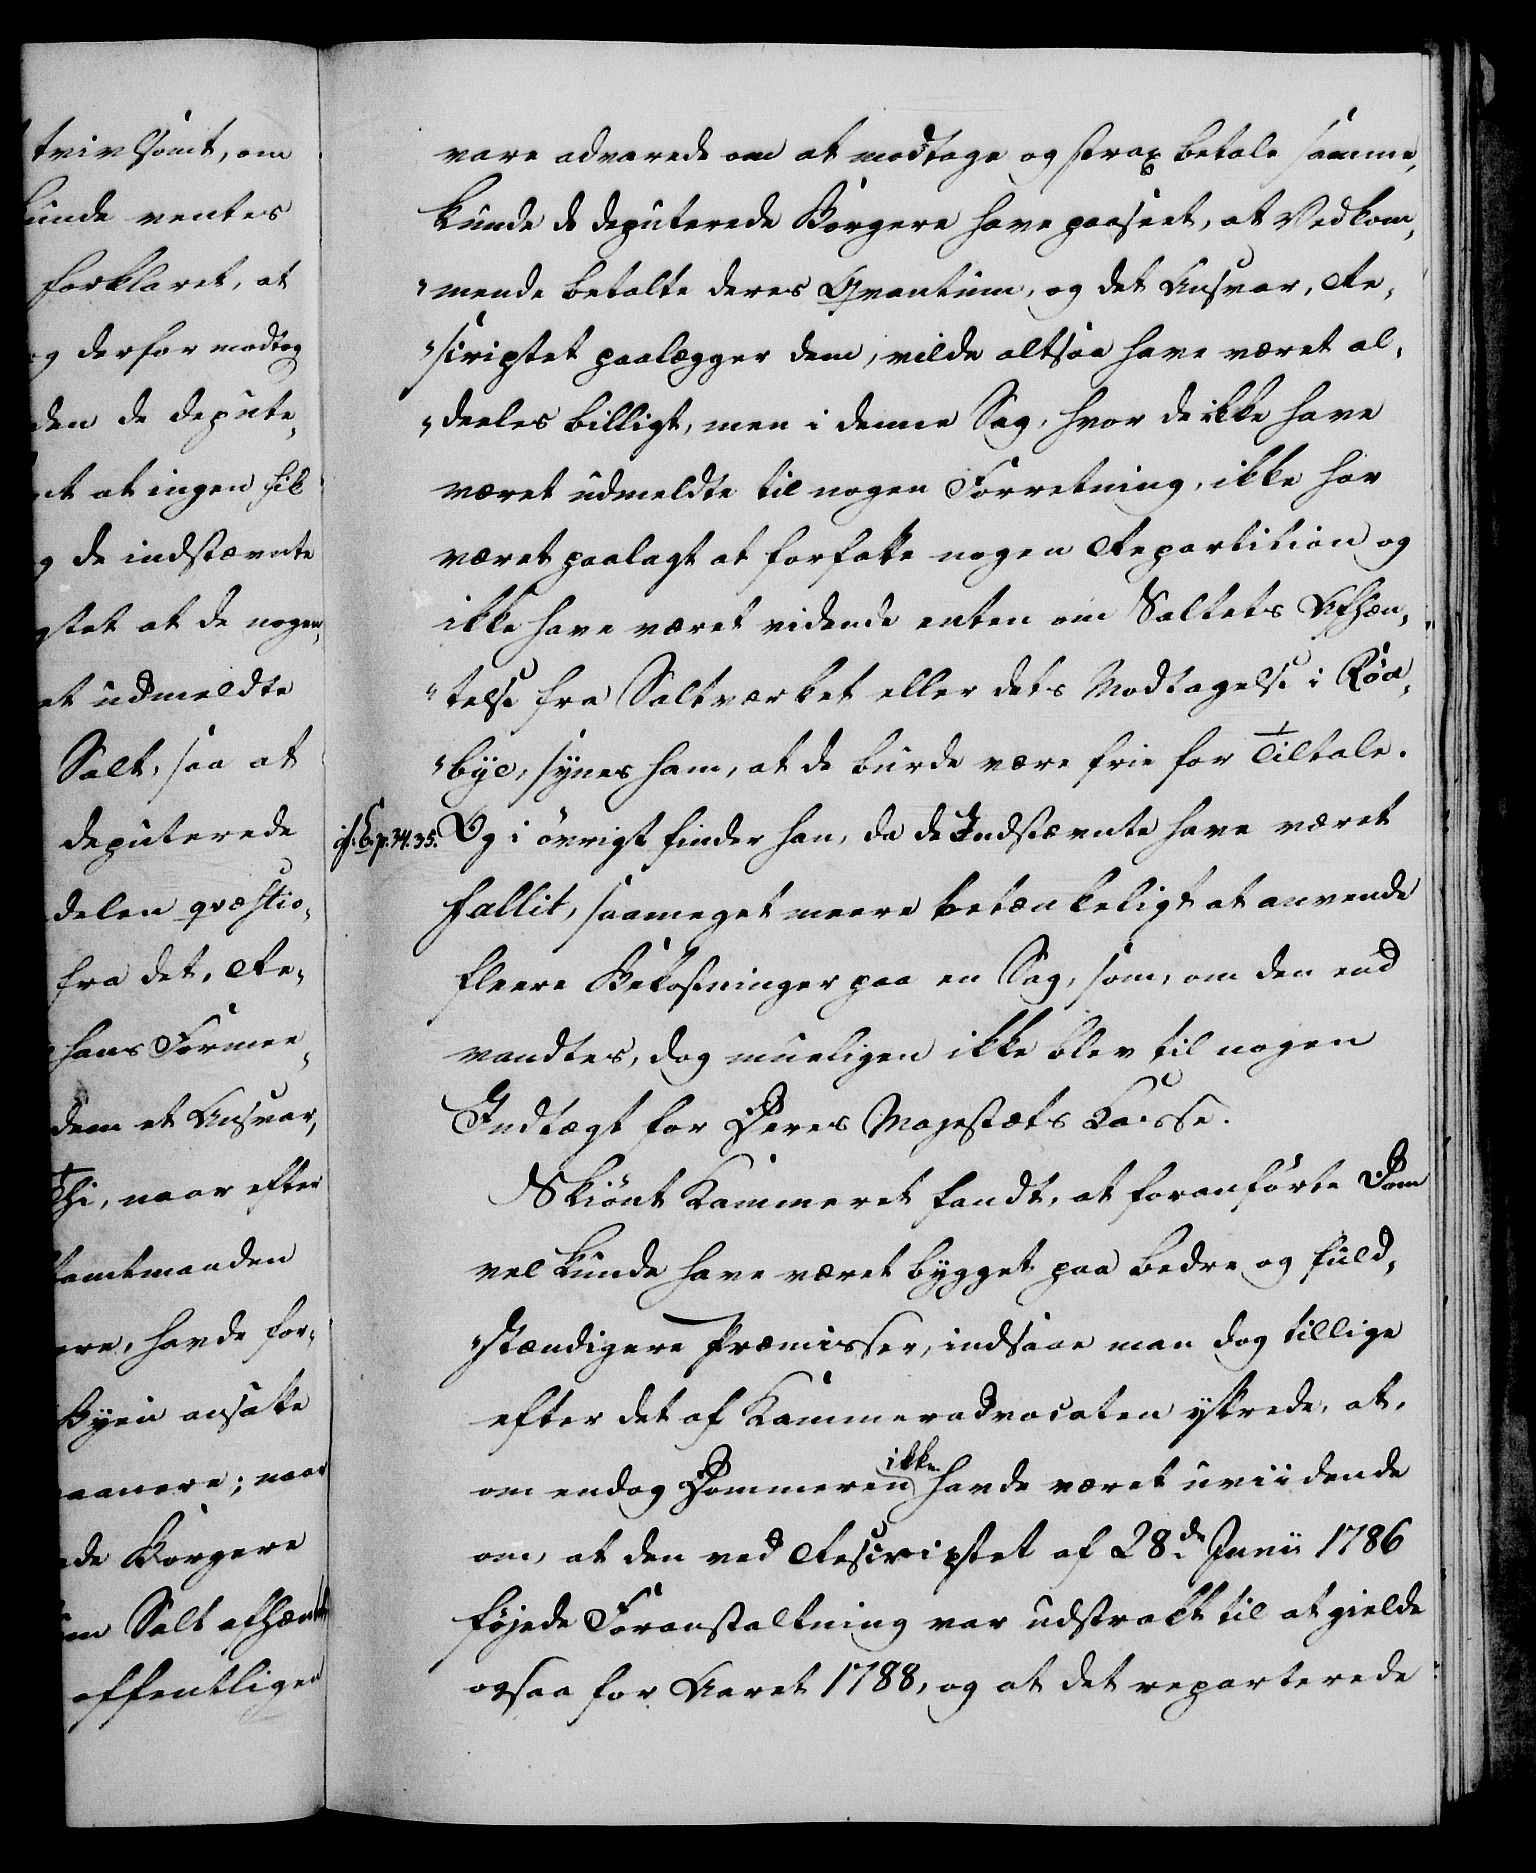 tvivlsomt, om
kunde ventes
forklaret, at
og derfor modtog
den de depute„
at ingen fik
g de indstævnte
gtet at de nogen„
et udmeldte
Salt, saa at
deputerede
delen qvæstio„
fra det, Re„
hans Formee„
dem et Ansvar,
Thi, naar efter
amtmanden
ere, havde for„
Byen ansatte
aanere; naar
de Borgere
m Salt afhænt
offentligen
vare advarede om at modtage og strax betale samme,
kunde de deputerede Borgere have paaseet, at Vedkom„
„mende betalte deres Qvantum, og det Ansvar, Re„
„scriptet paalægger dem, vilde altsaa have været al„
„deeles billigt, men i denne Sag, hvor de ikke have
været udmeldte til nogen Forretning, ikke har
været paalagt at forfatte nogen Repartition og
ikke have været vidende enten om Saltets Afhæn„
„telse fra Saltværket eller dets Modtagelse i Rød„
„bye, synes ham, at de burde være frie for Tiltale.
cfr. p. 34. 35.
Og i övrigt finder han, da de Indstævnte have været
fallit, saameget meere betænkeligt at anvende
fleere Bekostninger paa en Sag, som, om den end
vandtes, dog mueligen ikke blev til nogen
Indtægt for Deres Majestæts Casse.
Skiönt Kammeret fandt, at foranförte Dom
vel kunde have været bygget paa bedre og fuld„
„stændigere Præmisser, indsaae man dog tillige
efter det af Kammeradvocaten yttrede, at,
om endog Dommeren ikke havde været uviidende
om, at den ved Rescriptet af 28de Junii 1786
föjede Foranstaltning var udstrakt til at gielde
ogsaa for Aaret 1788, og at det reparterede